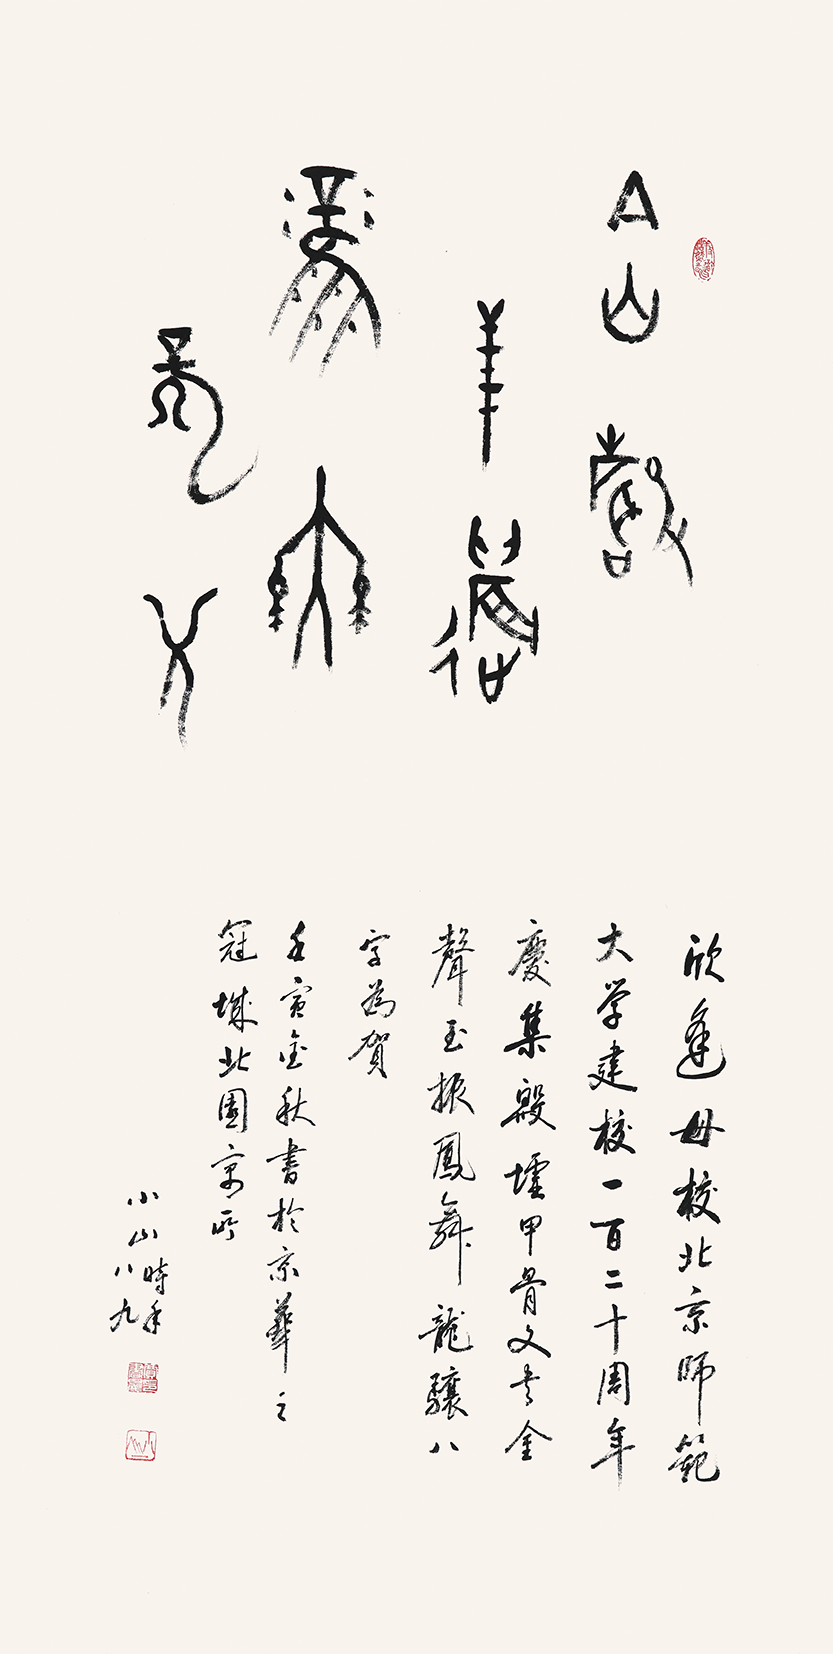 金聲
玉振
鳳舞
龍驤
欣逢母校北京師範
大学建校一百二十周年
慶集殷墟甲骨文書金
聲玉振鳳舞龍驤八
字為賀
壬寅金秋書於京華之
冠城北園寓所
小山時年八九